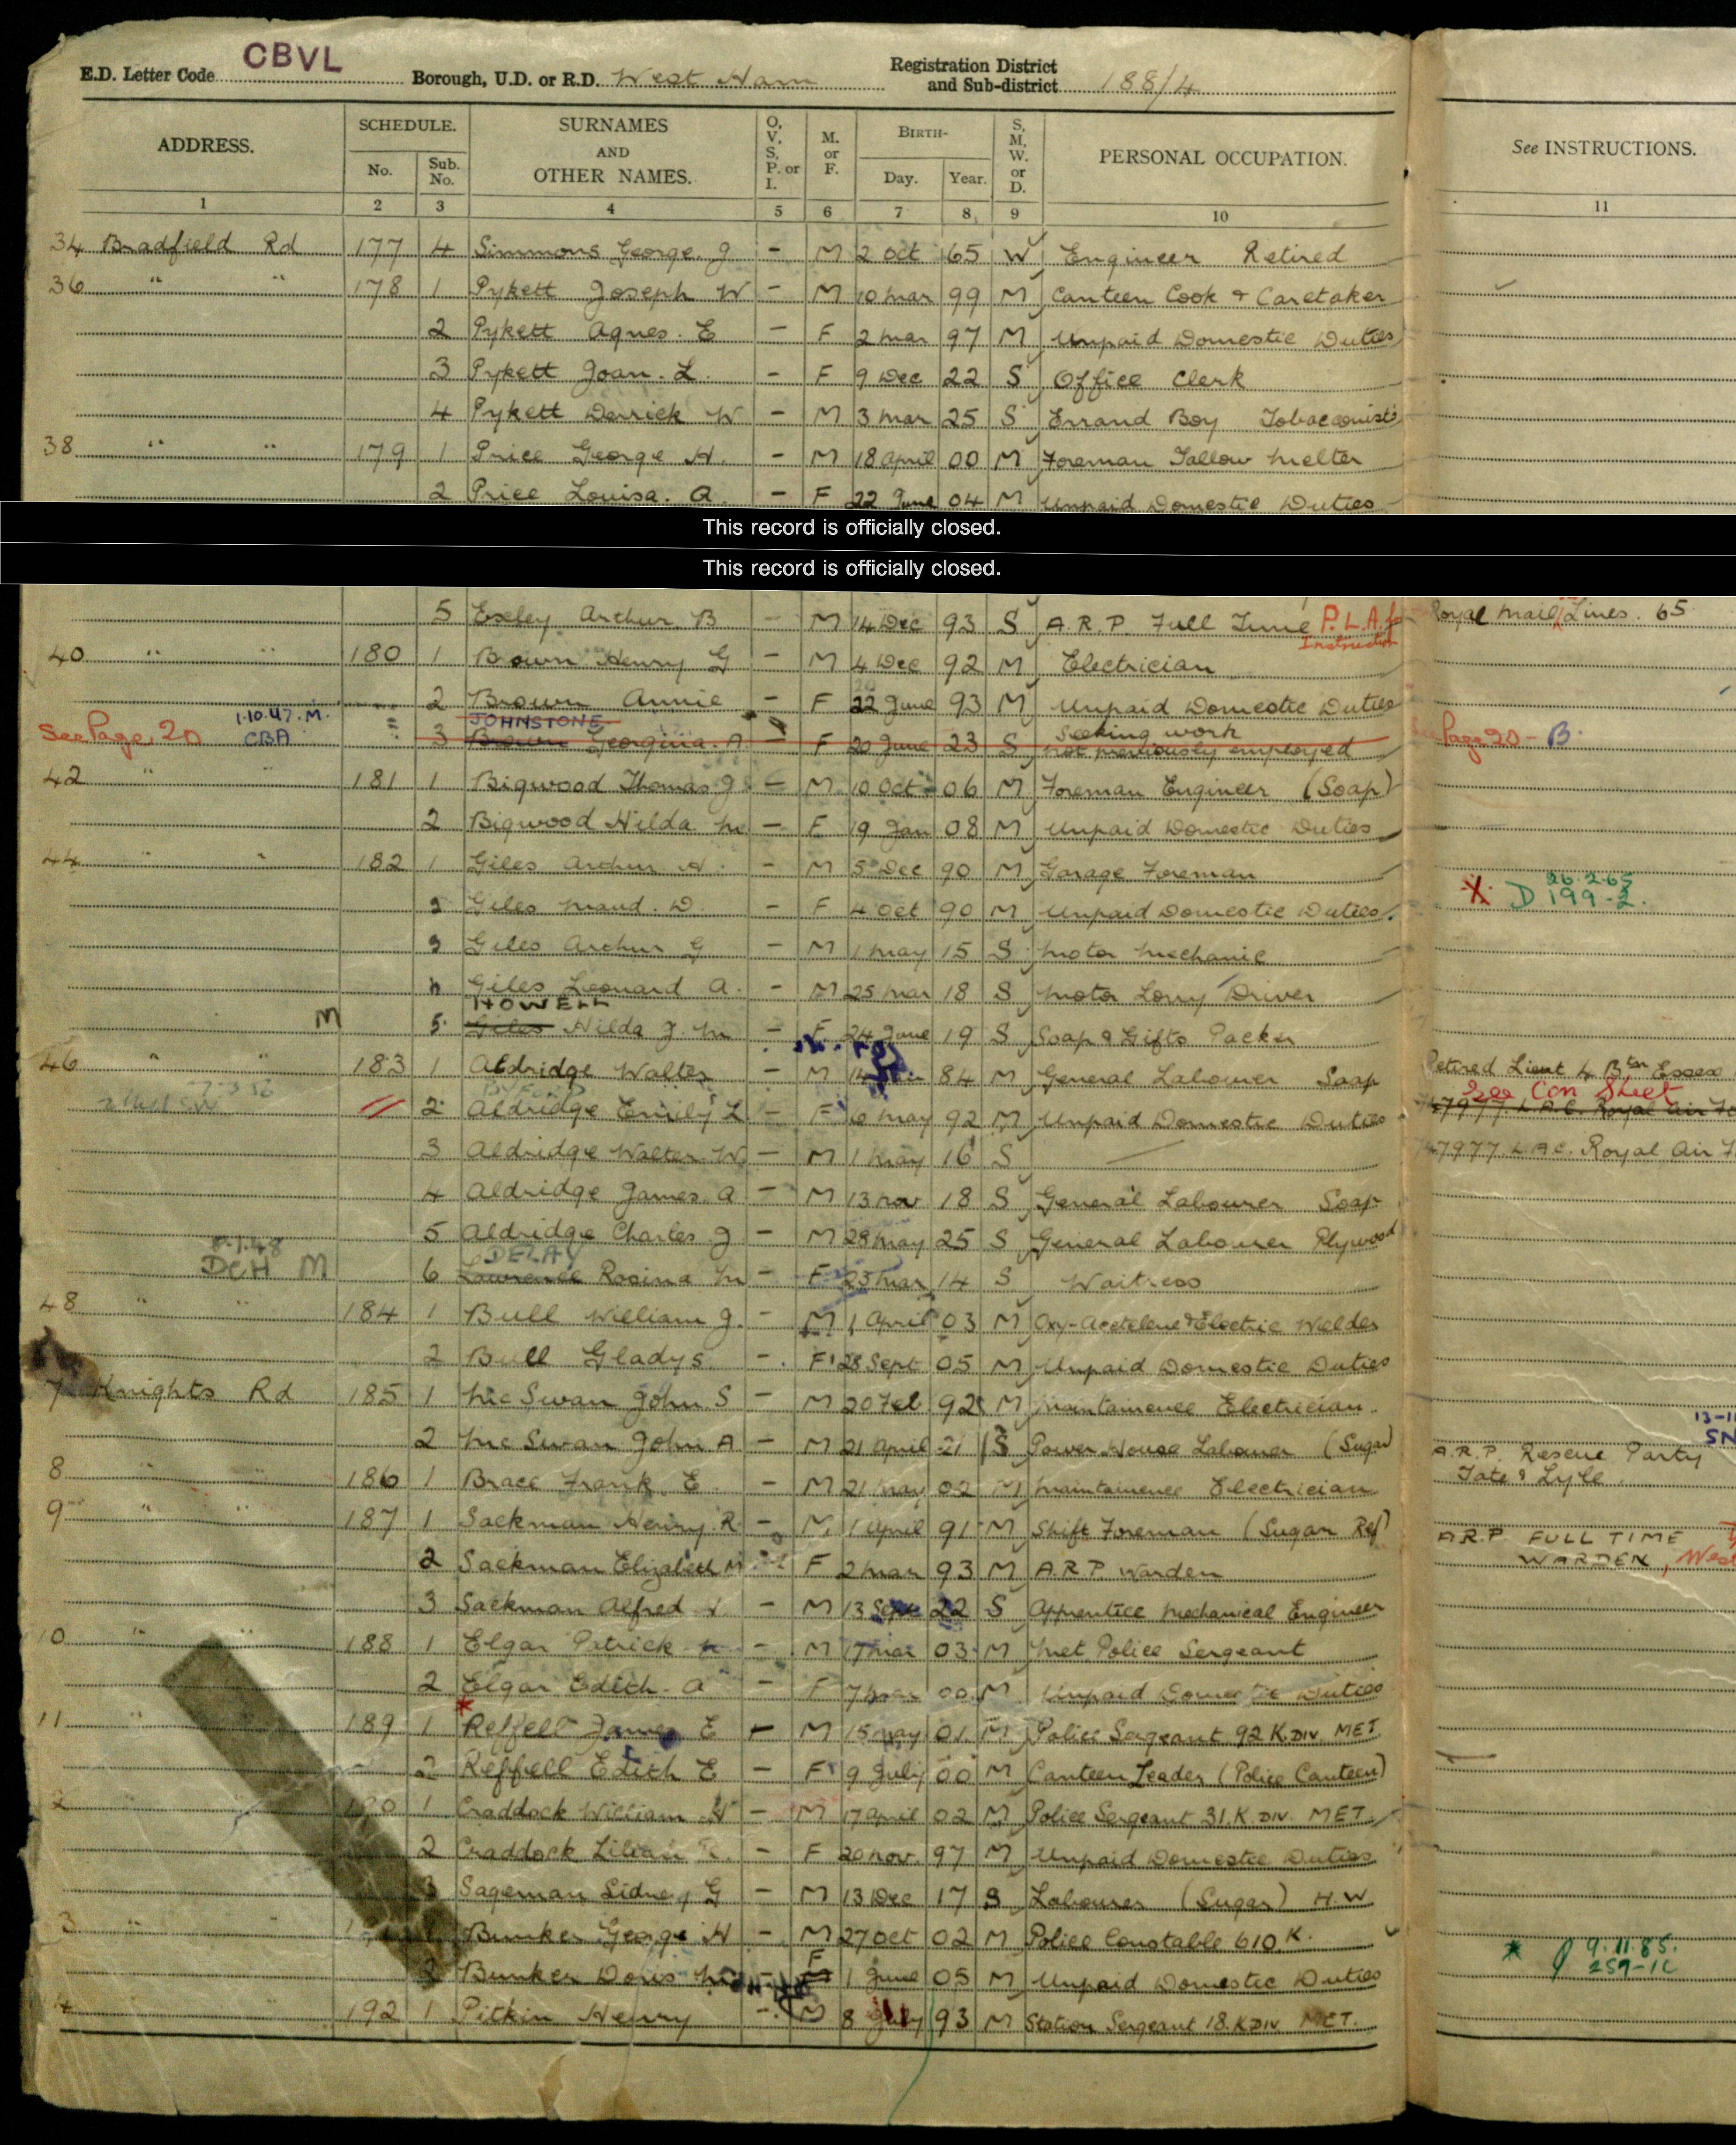 E.D. Letter Code CBVL Borough, U.D. or R.D. West Ham Registration District and Sub-district 188/4
ADDRESS. SCHEDULE. No. Sub. No. SURNAMES AND OTHER NAMES. O, V, S, P. or I. M. or F. BIRTH- Day. Year. S, M, W. or D. PERSONAL OCCUPATION. See INSTRUCTIONS.
1 2 3 4 5 6 7 8 9 10 11
34 Bradfield Rd 177 4 Simmons George J - M 2 Oct 65 W Engineer Retired
36 " " 178 1 Pykett Joseph W - M 10 Mar 99 M Canteen Cook & Caretaker
2 Pykett Agnes. E - F 2 Mar 97 M Unpaid Domestic Duties
3 Pykett Joan. L. - F 9 Dec 22 S Office Clerk
4 Pykett Derrick W - M 3 Mar 25 S Errand Boy Tobacconists
38 " " 179 1 Price George H. - M 18 April 00 M Foreman Tallow Melter
2 Price Louisa. A. - F 22 June 04 M Unpaid Domestic Duties
This record is officially closed.
This record is officially closed.
5 Exley Arthur B - M 14 Dec 93 S A.R.P. Full Time P.L.A. Royal Mail Lines. 65
Instruction
40 " " 180 1 Brown Henry G - M 4 Dec 92 M Electrician
2 Brown Annie - F 22 June 93 M Unpaid Domestic Duties
JOHNSTONE
See Page 20 1.10.47. M. CBA 3 Brown Georgina. A - F 20 June 23 S Seeking work not previously employed Page 20 - B.
42 " " 181 1 Bigwood Thomas J - M 10 Oct 06 M Foreman Engineer (Soap)
2 Bigwood Hilda M - F 19 Jan 08 M Unpaid Domestic Duties
44 " " 182 1 Giles Arthur H. - M 5 Dec 90 M Garage Foreman
2 Giles Maud. D. - F 4 Oct 90 M Unpaid Domestic Duties. X D 26.2.65 199-2.
3 Giles Arthur G - M 1 May 15 S Motor Mechanic
4 Giles Leonard A. - M 25 Mar 18 S Motor Lorry Driver
HOWELL
M 5 Giles Hilda J. M - F 24 June 19 S Soap & Gifts Packer
46 " " 183 1 Aldridge Walter - M 14 84 M General Labourer Soap Retired Lieut 4 Btn Essex
See Con Sheet
2 Aldridge Emily L - F 6 May 92 M Unpaid Domestic Duties 47977 L.A.C. Royal Air
3 Aldridge Walter W. - M 1 May 16 S — 47977 L.A.C. Royal Air
4 Aldridge James. A - M 13 Nov 18 S General Labourer Soap
5 Aldridge Charles J - M 28 May 25 S General Labourer Plywood
8.1.48 DELAY
DCH M 6 Lawrence Rosina M - F 23 Mar 14 S Waitress
48 " " 184 1 Bull William J. - M 1 April 03 M Oxy-Acetelene & Electric Welder
2 Bull Gladys - F 28 Sept 05 M Unpaid Domestic Duties
7 Knights Rd 185 1 McSwan John S - M 20 Feb 92 M Maintainence Electrician.
2 McSwan John A - M 21 April 21 S Power House Labourer (Sugar) A.R.P. Rescue Party
8 186 1 Brace Frank. E. - M 21 May 02 M Maintainence Electrician Tate & Lyle.
9 " " 187 1 Sackman Henry. R - M 1 April 91 M Shift Foreman (Sugar Ref) A.R.P. FULL TIME
2 Sackman Elizabeth M F 2 Mar 93 M A.R.P. Warden WARDEN,
3 Sackman Alfred - M 13 Sept 22 S Apprentice Mechanical Engineer
10 " " 188 1 Elgar Patrick - M 17 Mar 03 M Met Police Sergeant
2 Elgar Edith. A - F 7 00 M Unpaid Domestic Duties
11 " " 189 1 Reffell James E - M 15 May 01 M Police Sergeant 92 K.DIV. MET.
2 Reffell Edith E - F 9 July 00 M Canteen Leader (Police Canteen)
2 " " 190 1 Craddock William H - M 17 April 02 M Police Sergeant 31. K. DIV. MET.
2 Craddock Lilian - F 20 Nov. 97 M Unpaid Domestic Duties
3 Sageman Sidney G - M 13 Dec 17 S Labourer (Sugar) H.W.
3 " " Bunker George H - M 27 Oct 02 M Police Constable 610. K.
2 Bunker Doris M - F 1 June 05 M Unpaid Domestic Duties 9.11.85. 259-1C
192 1 Pitkin Henry - M 8 July 93 M Station Sergeant 18. K DIV MET.